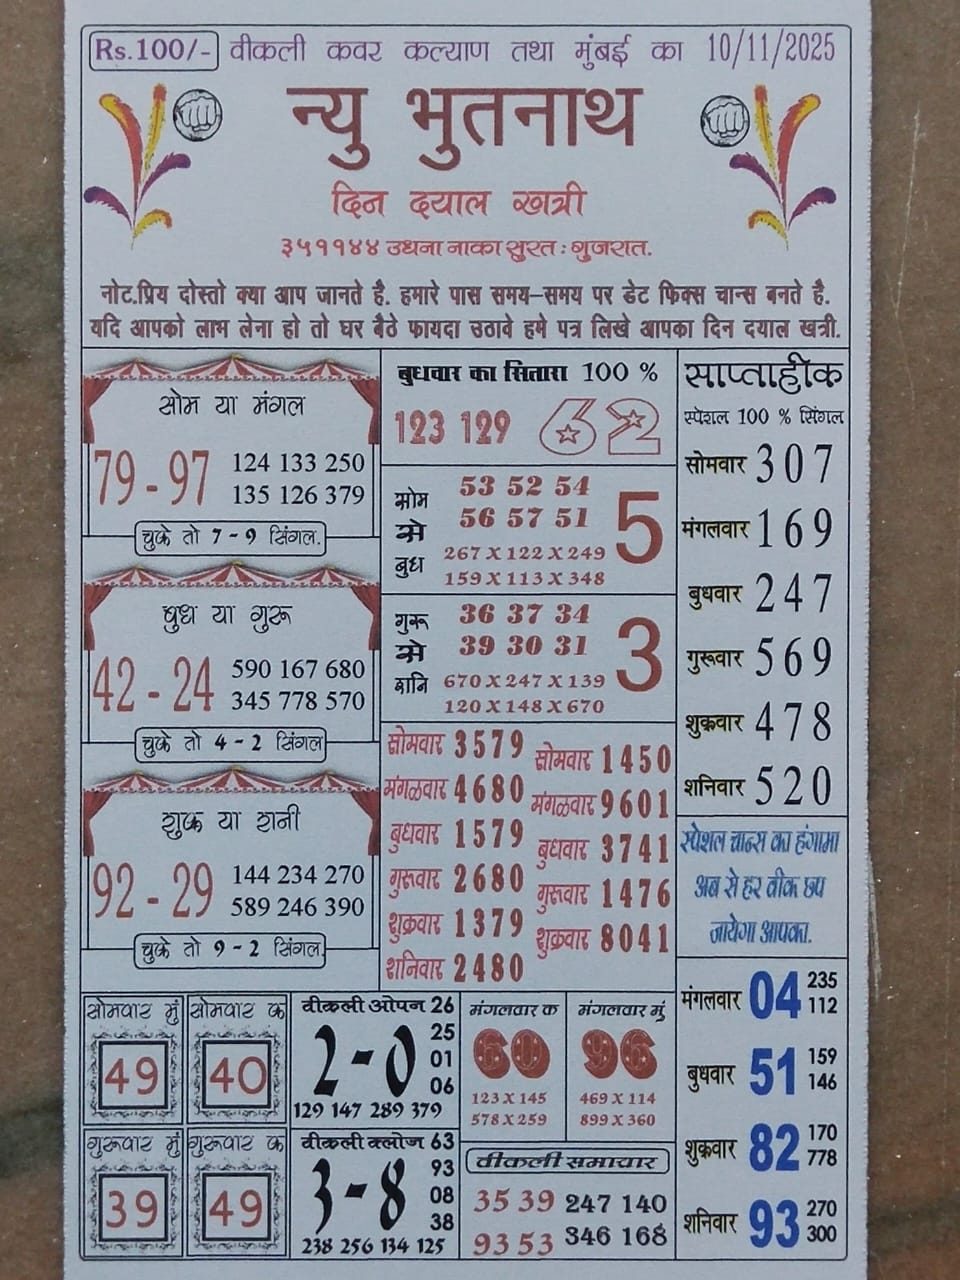 Rs.100/- वीकली कवर कल्याण तथा मुंबई का 10/11/2025
न्यु भुतनाथ
दिन दयाल खत्री
३५११४४ उधना नाका सुरत : गुजरात.
नोट.प्रिय दोस्तो क्या आप जानते है. हमारे पास समय-समय पर डेट फिक्स चान्स बनते है.
यदि आपको लाभ लेना हो तो घर बैठे फायदा उठावे हमे पत्र लिखे आपका दिन दयाल खत्री.
सोम या मंगल
79 - 97
124 133 250
135 126 379
चुके तो 7 - 9 सिंगल.
बुध या गुरू
42 - 24
590 167 680
345 778 570
चुके तो 4 - 2 सिंगल
शुक्र या शनी
92 - 29
144 234 270
589 246 390
चुके तो 9 - 2 सिंगल.
बुधवार का सितारा 100 %
123 129 62
सोम से बुध
53 52 54
56 57 51
267 X 122 X 249
159 X 113 X 348
5
गुरू से शनि
36 37 34
39 30 31
670 X 247 X 139
120 X 148 X 670
3
सोमवार 3579
मंगलवार 4680
बुधवार 1579
गुरूवार 2680
शुक्रवार 1379
शनिवार 2480
सोमवार 1450
मंगळवार 9601
बुधवार 3741
गुरूवार 1476
शुक्रवार 8041
साप्ताहीक
स्पेशल 100 % सिंगल
सोमवार 307
मंगलवार 169
बुधवार 247
गुरूवार 569
शुक्रवार 478
शनिवार 520
स्पेशल चान्स का हंगामा
अब से हर वीक छप
जायेगा आपका.
मंगलवार 04 235 112
बुधवार 51 159 146
शुक्रवार 82 170 778
शनिवार 93 270 300
सोमवार मुं
49
सोमवार क
40
गुरूवार मुं
39
गुरूवार क
49
वीकली ओपन 26
2 - 0
25
01
06
129 147 289 379
वीकली क्लोज 63
3 - 8
93
08
38
238 256 134 125
मंगलवार क
60
123 X 145
578 X 259
मंगलवार मुं
96
469 X 114
899 X 360
वीकली समाचार
35 39 247 140
93 53 346 168